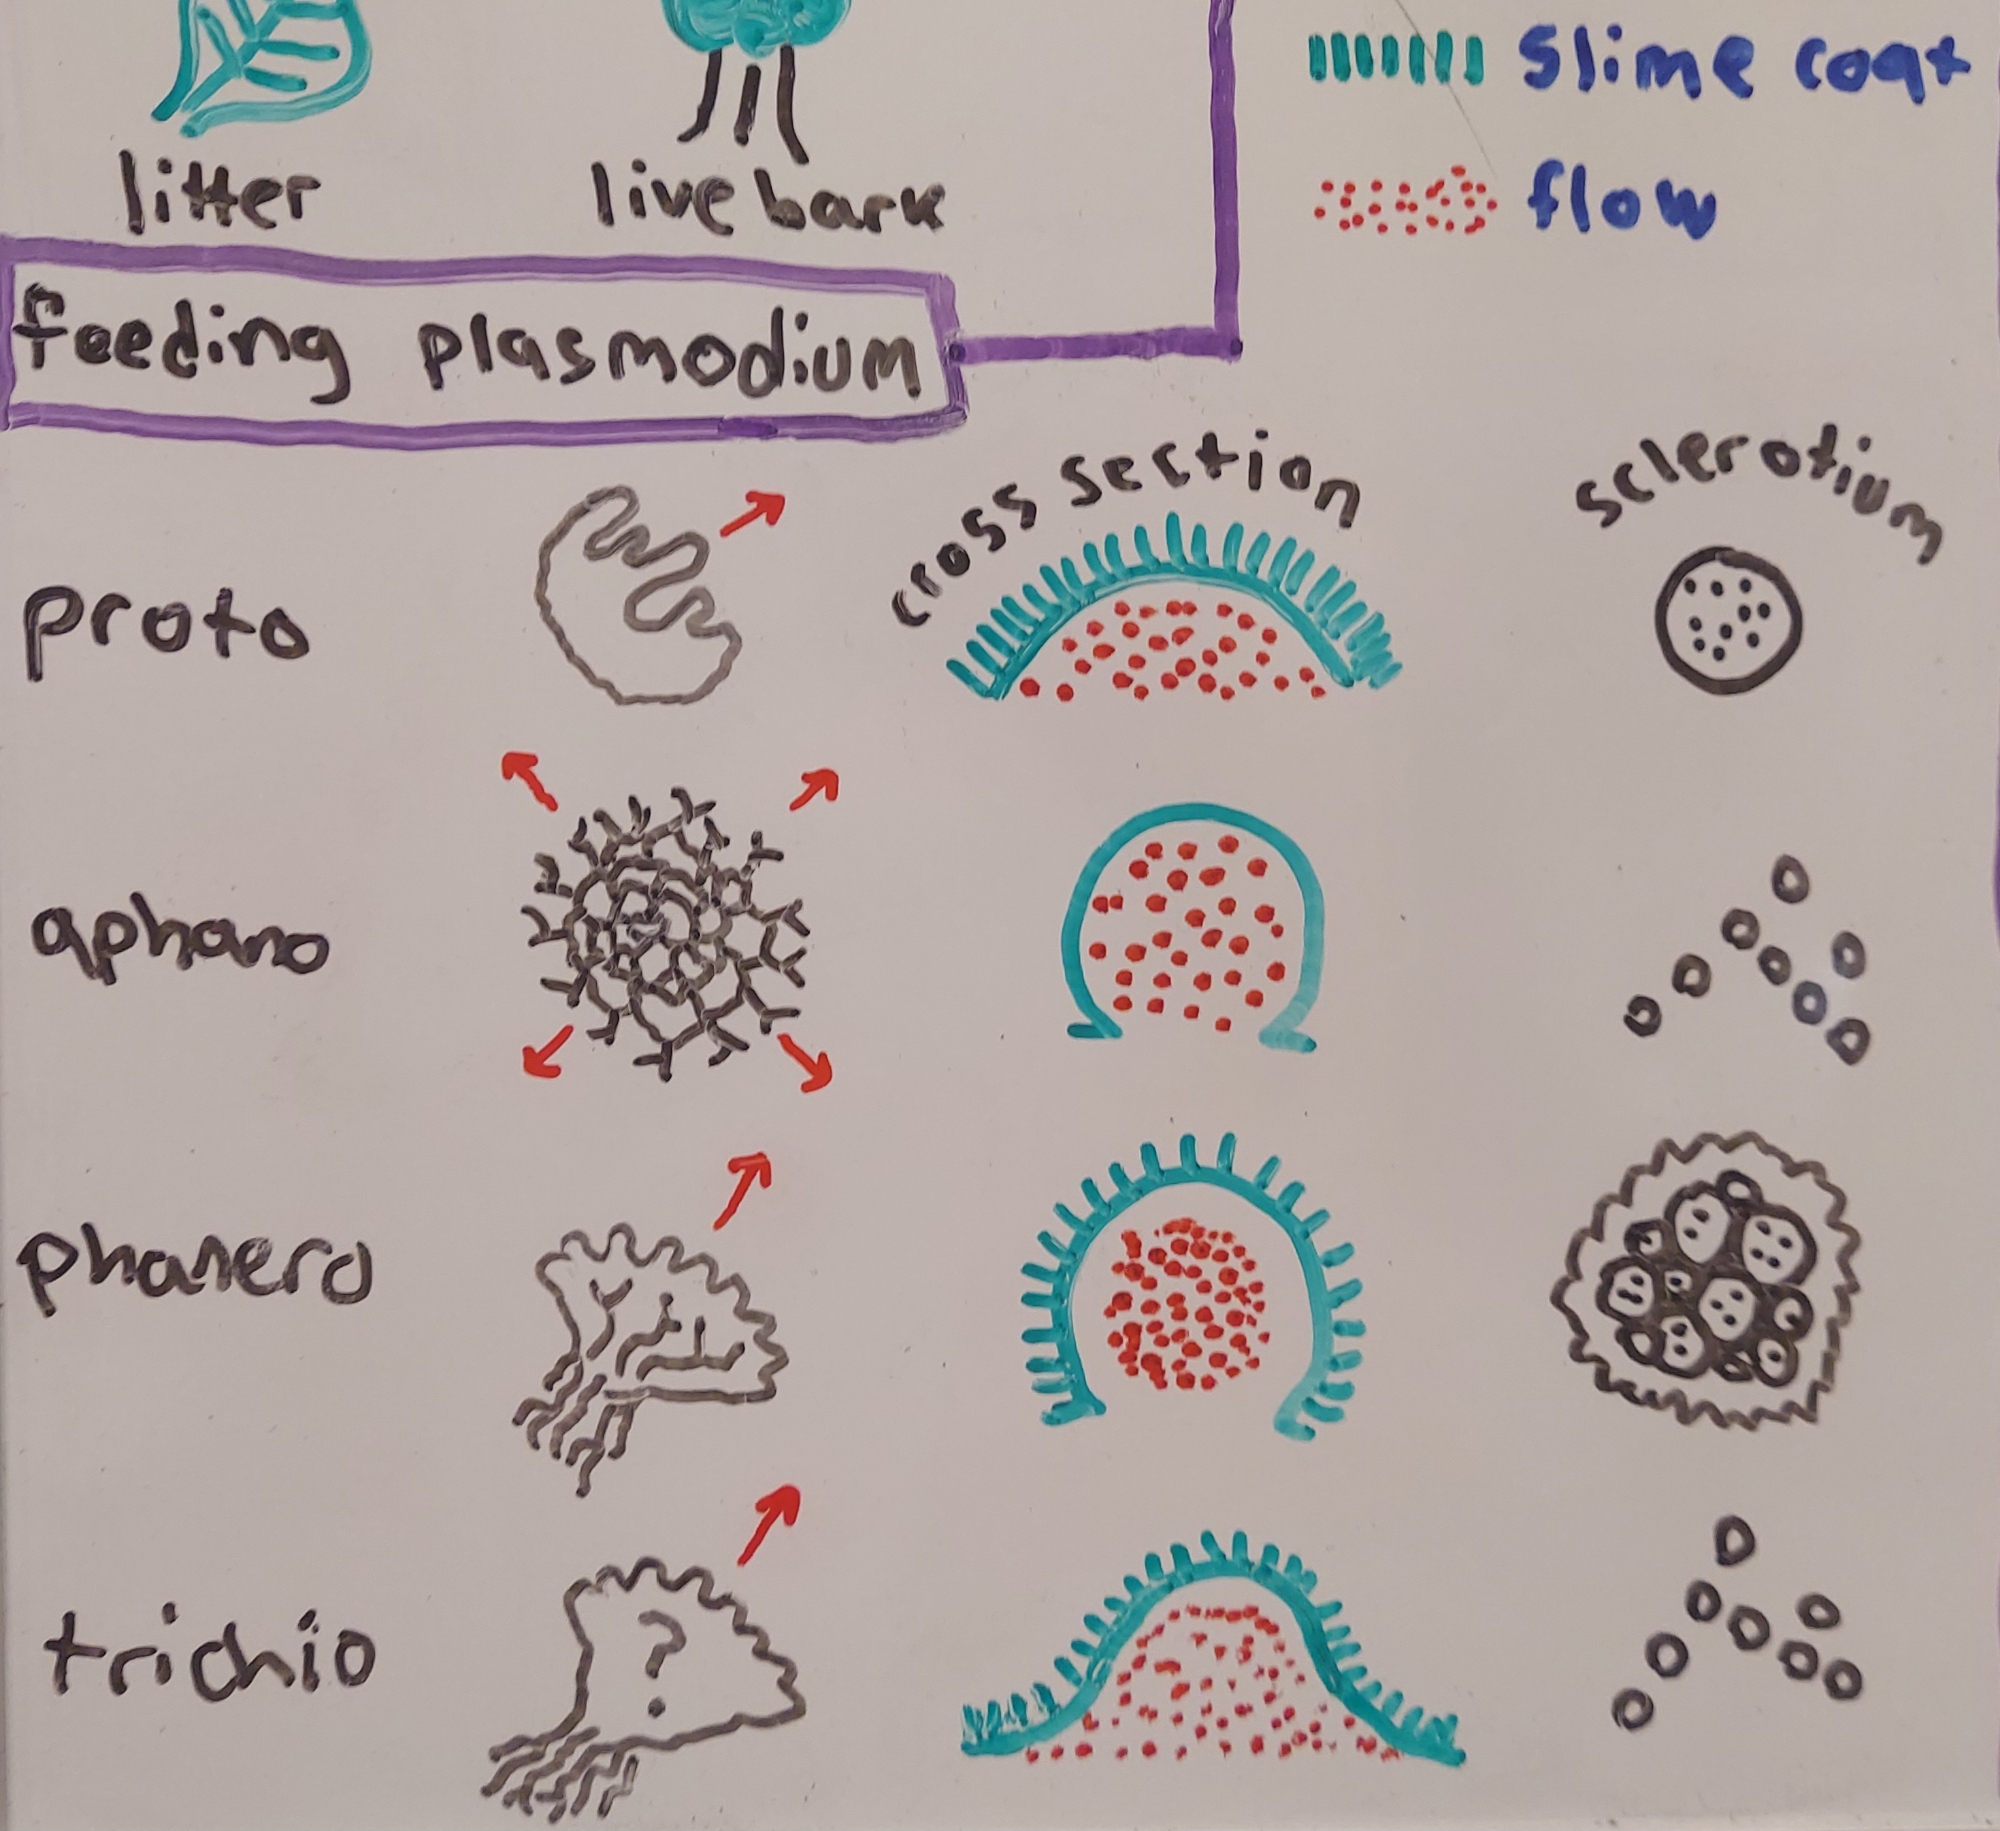 litter
live bark
slime coat
flow
feeding plasmodium
cross section
sclerotium
proto
aphano
phanero
trichio
?